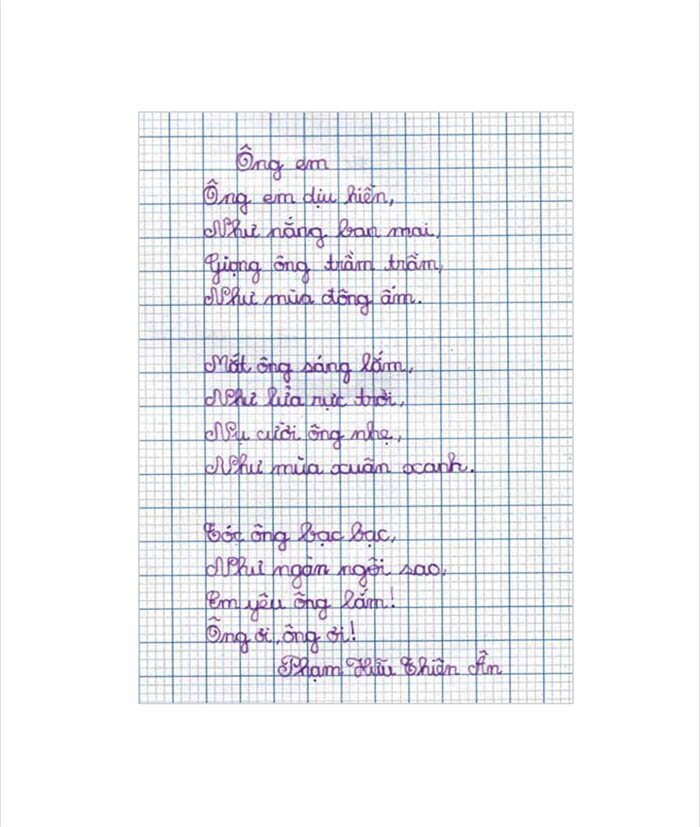 Ông em
Ông em dịu hiền,
Như nắng ban mai,
Giọng ông trầm trầm,
Như mùa đông ấm.
Mắt ông sáng lắm,
Như lửa rực trời,
Nụ cười ông nhẹ,
Như mùa xuân xanh.
Tóc ông bạc bạc,
Như ngàn ngôi sao,
Em yêu ông lắm!
Ông ơi, ông ơi!
Phạm Hữu Thiên Ân